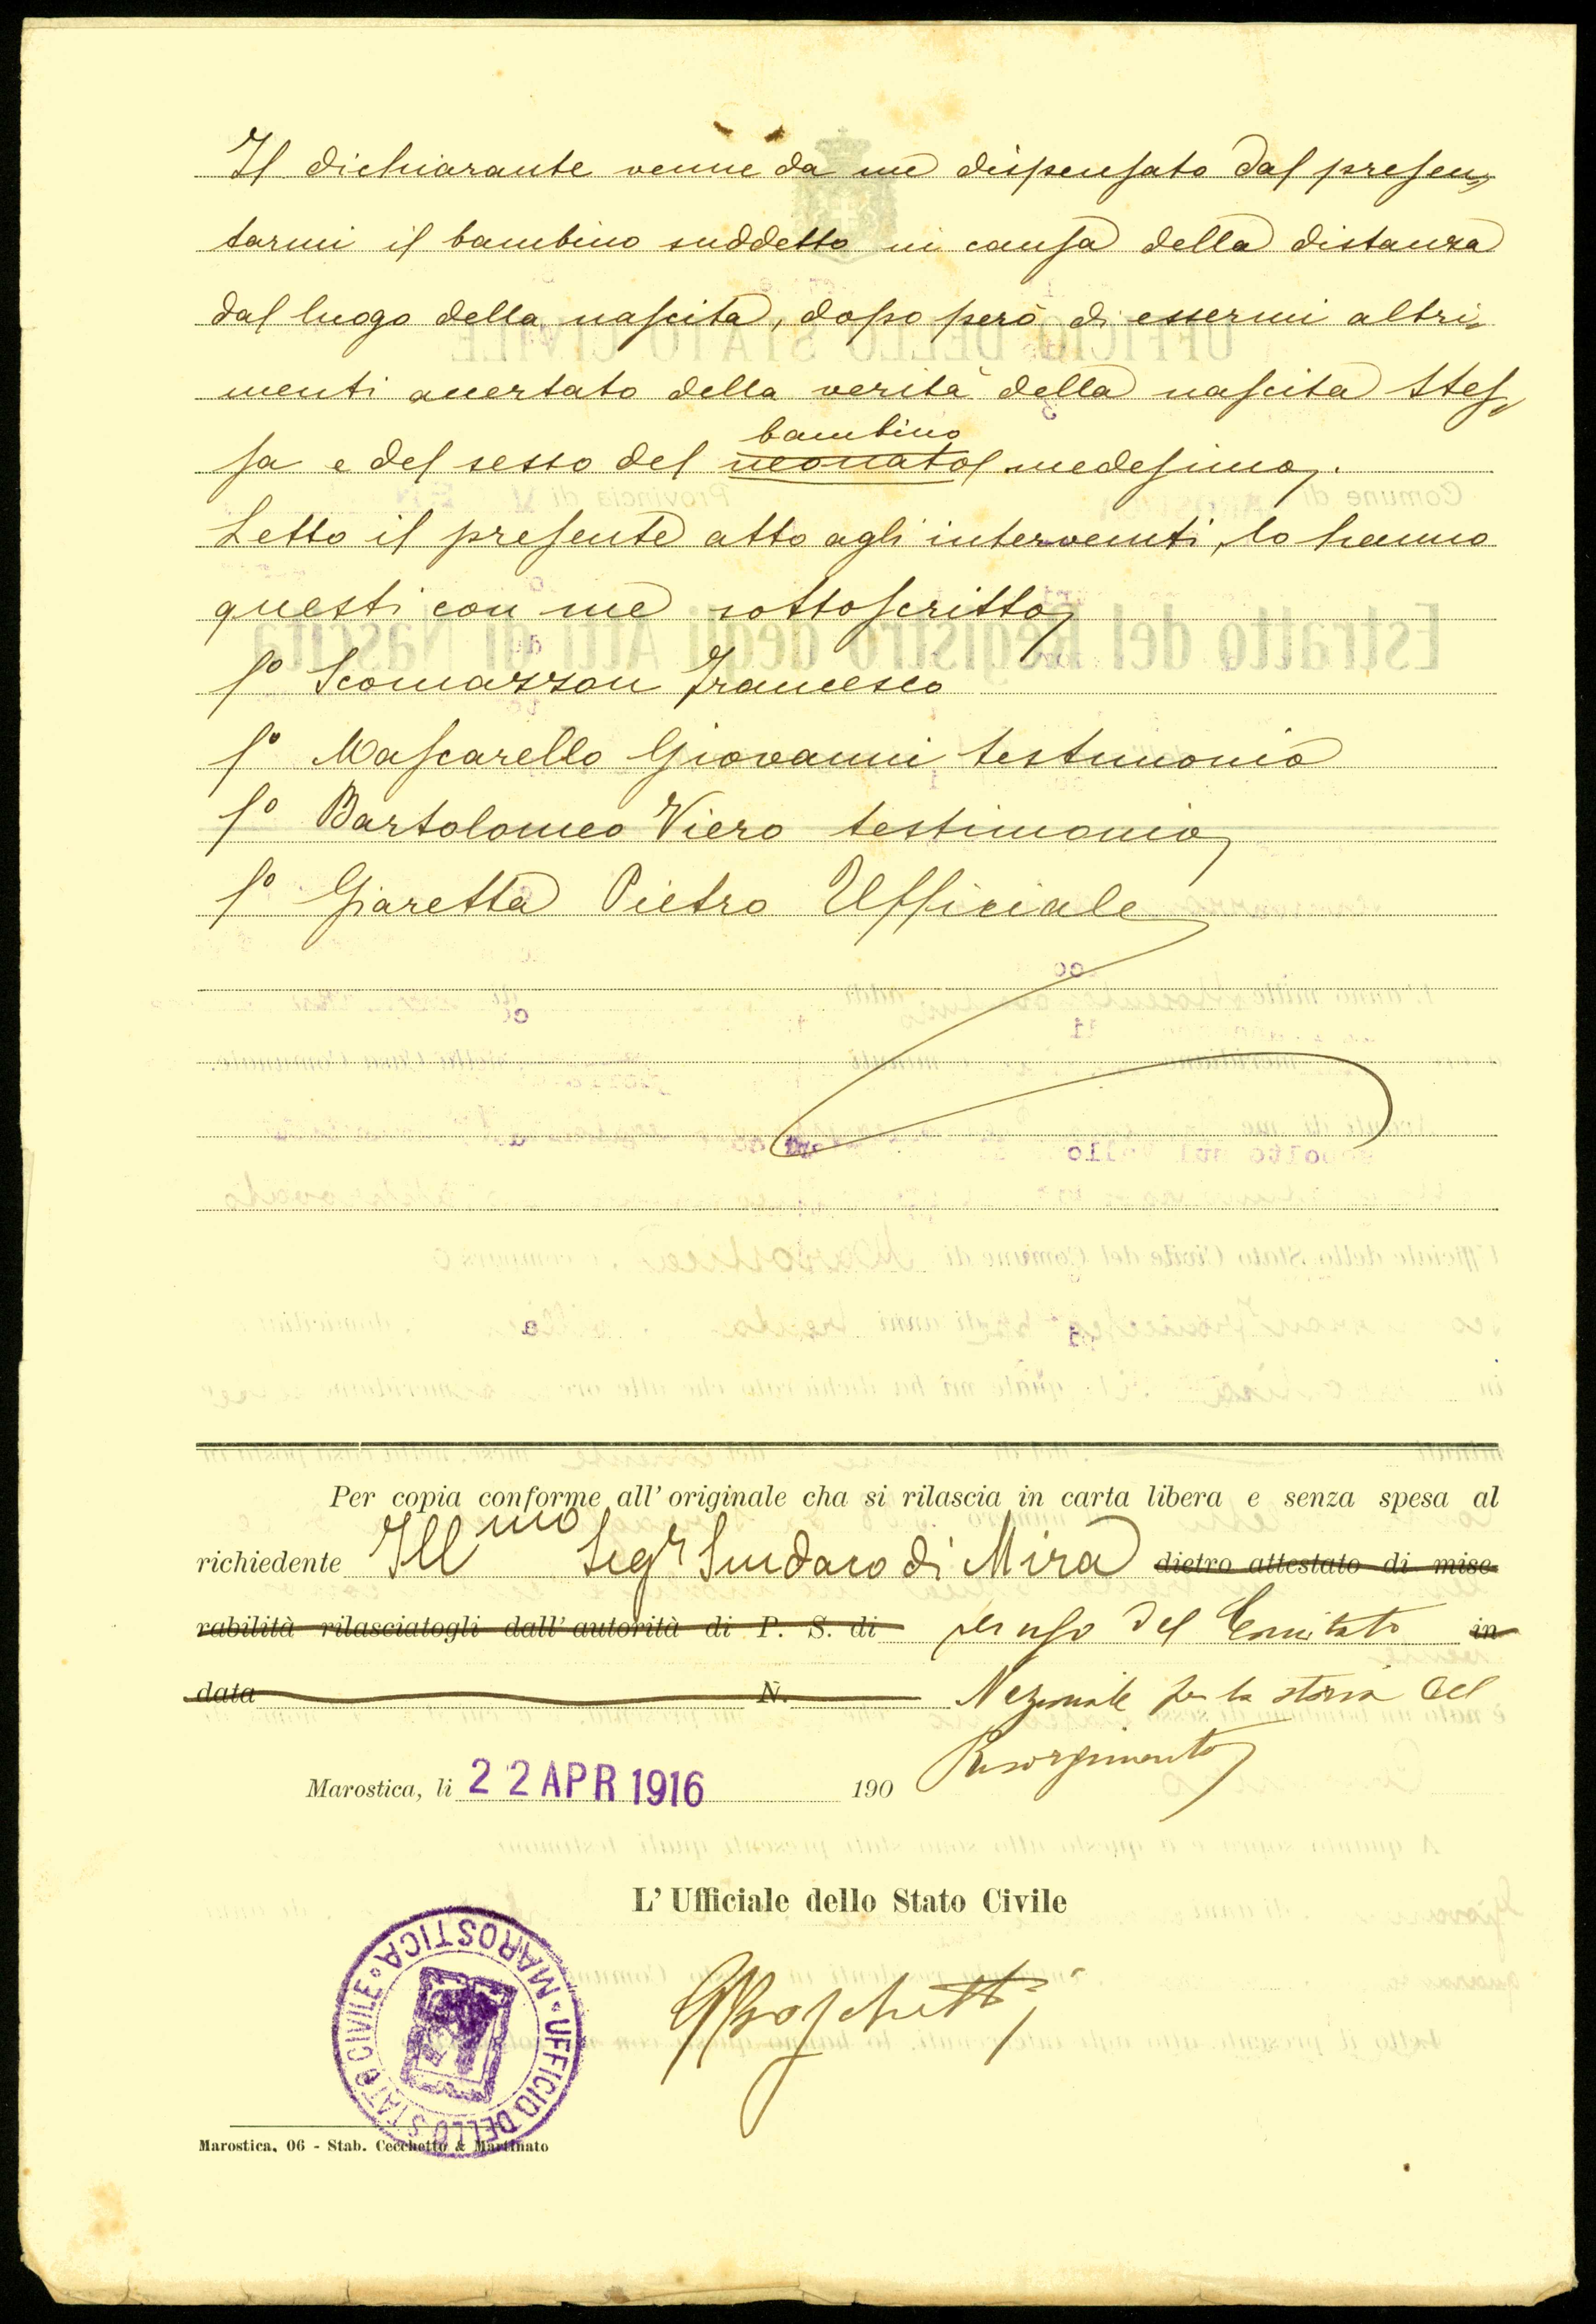 Il dichiarante venne da me dispensato dal presen-
tarmi il bambino suddetto in causa della distanza
dal luogo della nascita, dopo però di essermi altri-
menti accertato della verità della nascita stes-
bambino
sa e del sesso del neonato medesimo.
Letto il presente atto agli intervenuti, lo hanno
questi con me sottoscritto
fº Scomazzon Francesco
fº Mascarello Giovanni testimonio
fº Bartolomeo Viero testimonio
fº Giaretta Pietro Ufficiale
Per copia conforme all' originale cha si rilascia in carta libera e senza spesa al
richiedente Ill mo Sigr Sindaco di Mira dietro attestato di mise-
rabilità rilasciatogli dall' autorità di P. S. di per uso del Comitato in
data N. Nazionale per la storia del
Risorgimento
Marostica, li 22 APR 1916 190
L' Ufficiale dello Stato Civile
GBoschetti
UFFICIO DELLO STATO CIVILE • MAROSTICA •
Marostica, 06 - Stab. Cecchetto & Martinato